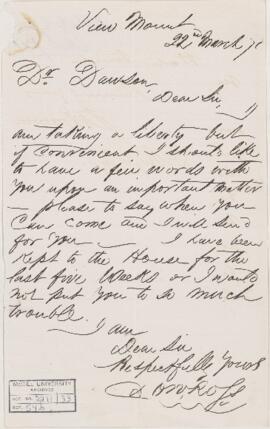 View Mount
22nd March 71
Dr Dawson
Dear Sir,
I
am taking a liberty but
if convenient I should like
to have a few words with
you upon an important matter
— please to say when you
can come and I will send
for you — I have been
kept to the House for the
last five weeks or I would
not put you to so much
trouble.
I am
Dear Sir
Respectfully yours
McGILL UNIVERSITY
ARCHIVES